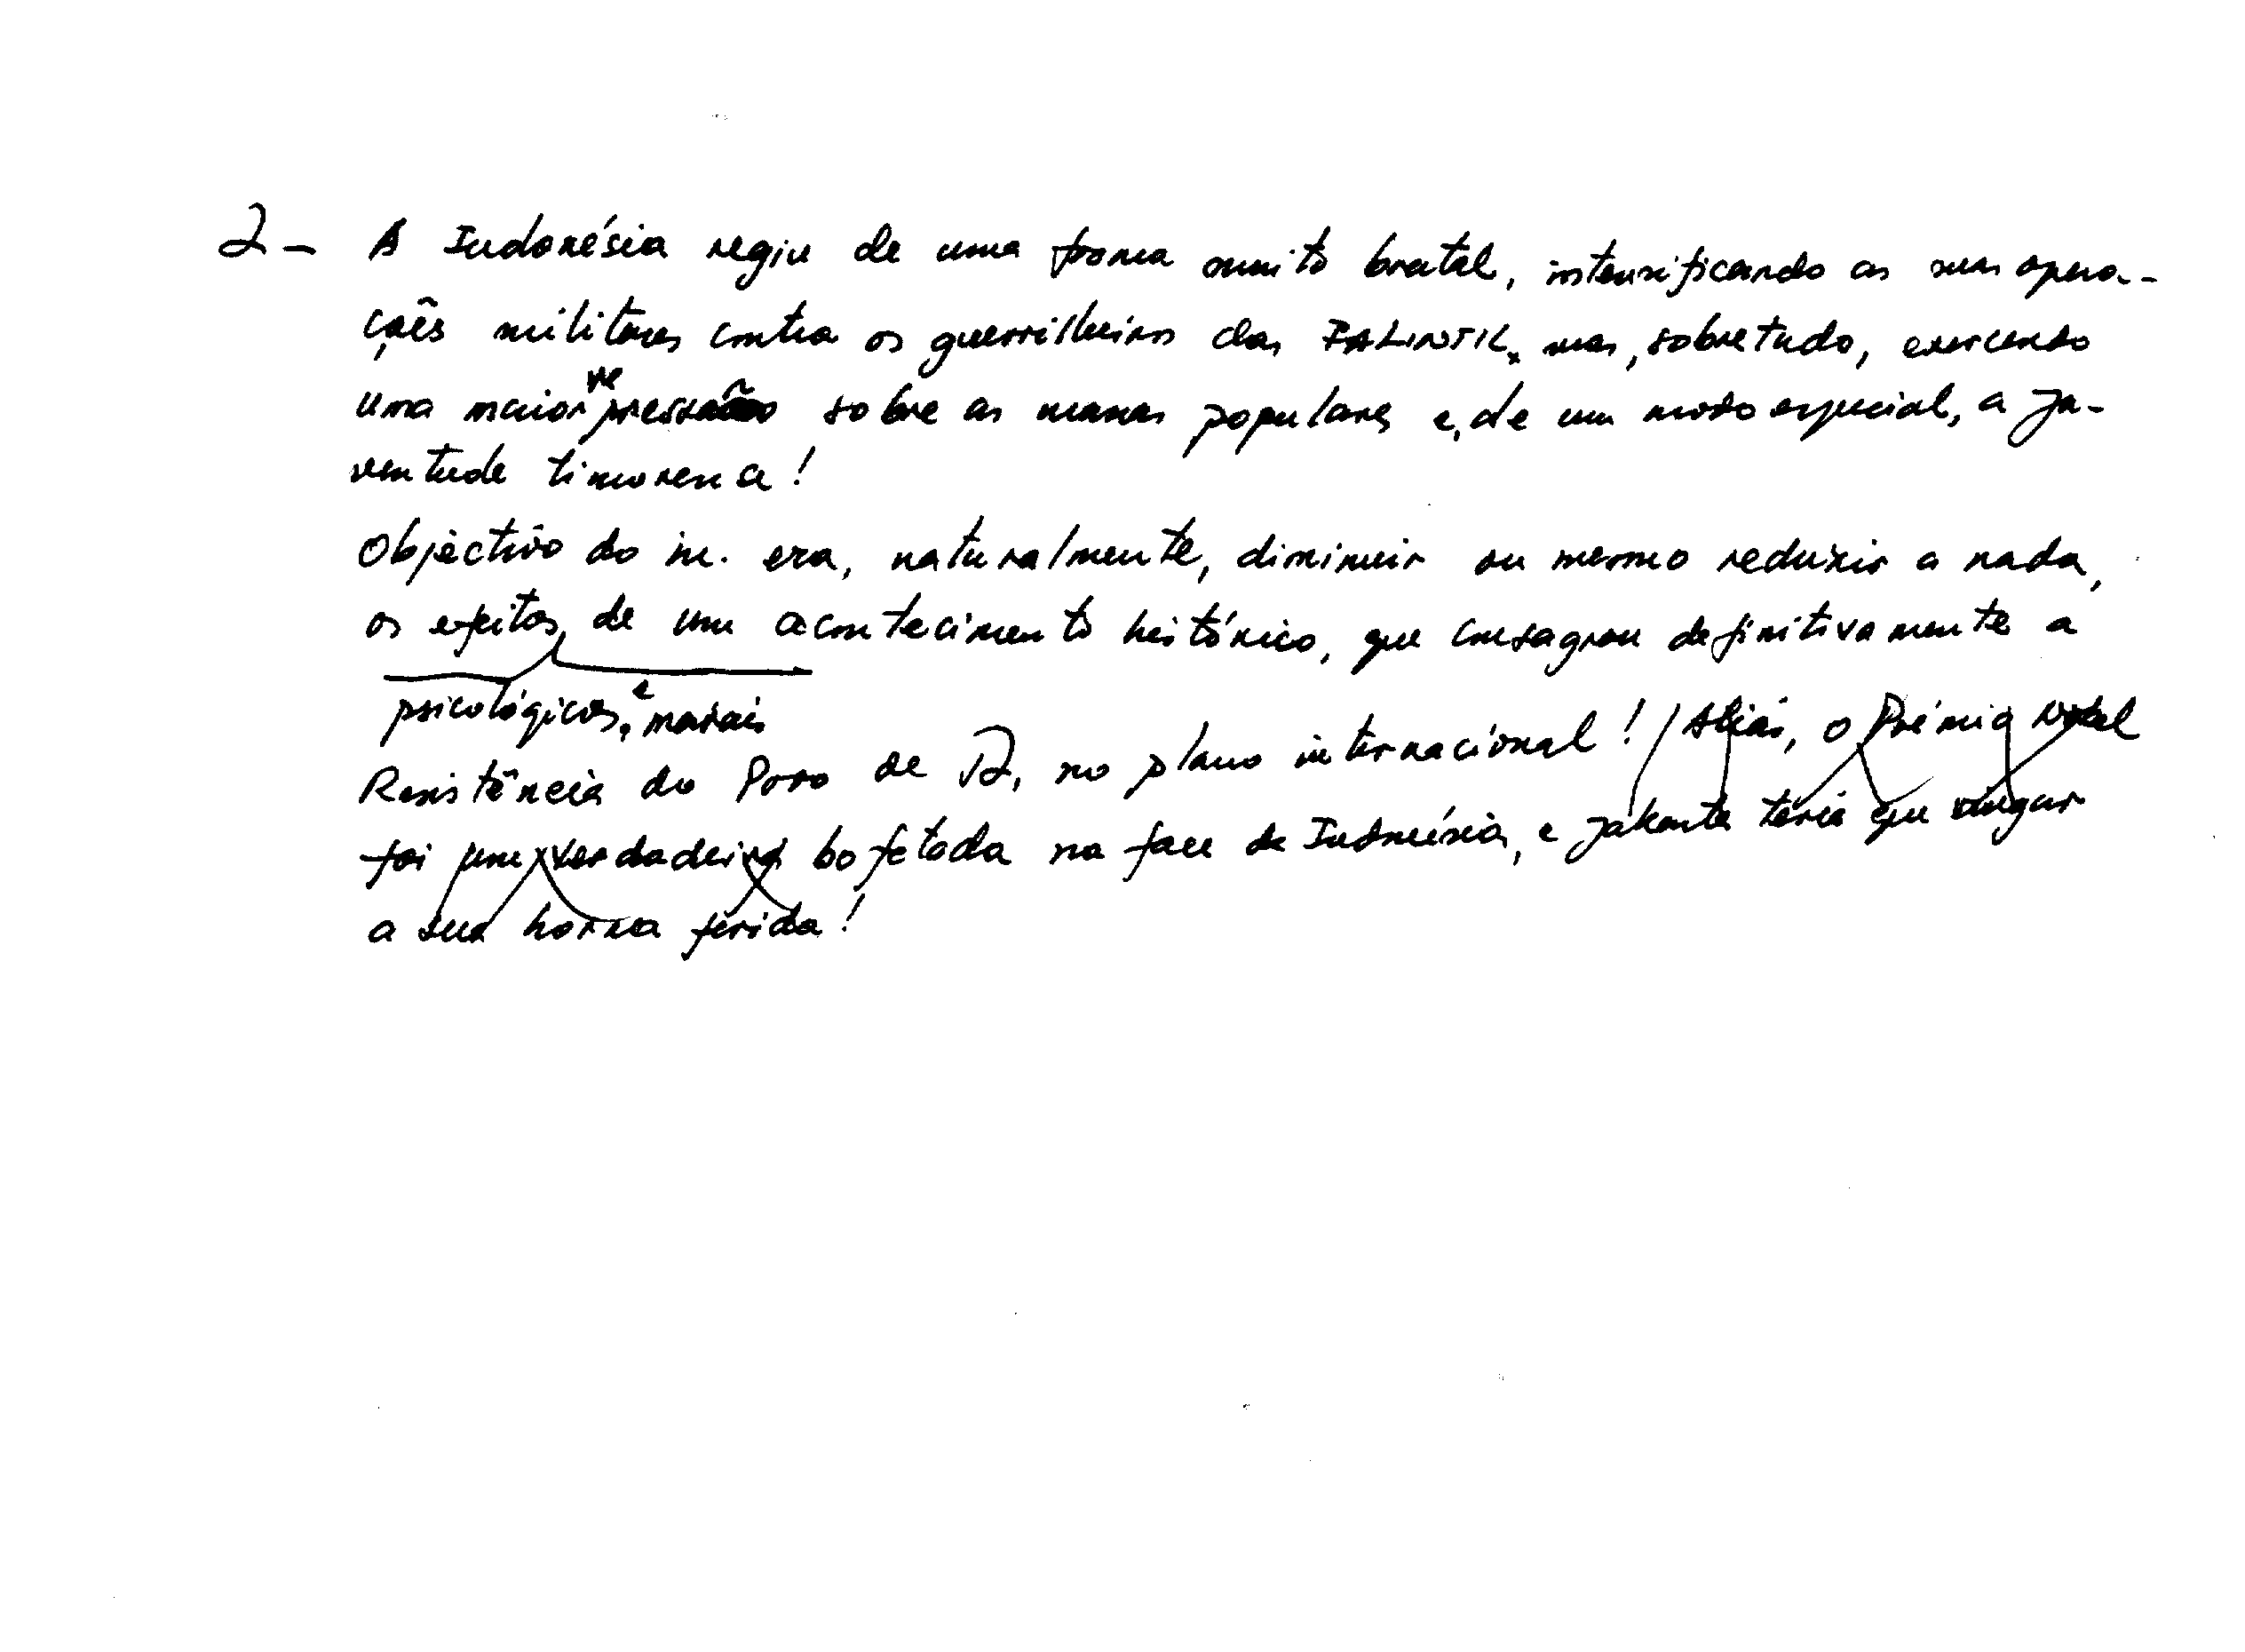 2- A Indonésia regiu de uma forma muito brutal, intensificando as suas opera-
ções militares contra os guerrilheiros das FALINTIL, mas, sobretudo, exercendo
uma maior repressão sobre as massas populares e, de um modo especial, a ju-
ventude timorense!
Objectivo do in. era, naturalmente, diminuir ou mesmo reduzir a nada,
os efeitos, de um acontecimento histórico, que consagrou definitivamente a
psicológicos, e morais
Resistência do Povo de , no plano internacional! / Aliás, o Prémio Nobel
foi uma verdadeira bofetada na face da Indonésia, e Jakarta teria que vingar
a sua honra ferida!